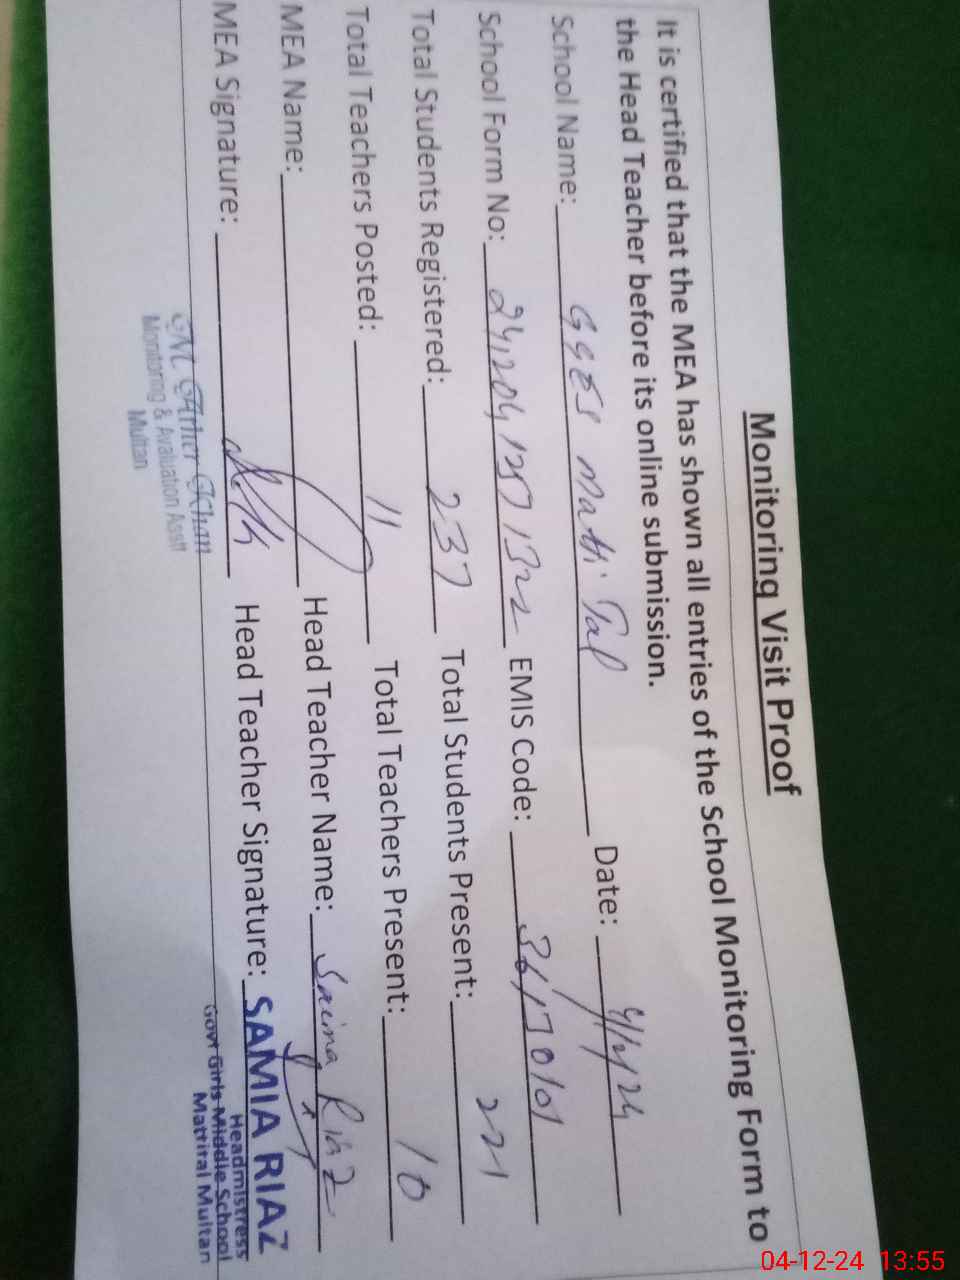 Monitoring Visit Proof
It is certified that the MEA has shown all entries of the School Monitoring Form to
the Head Teacher before its online submission.
School Name: GGES Matti Tal Date: 4/12/24
School Form No: EMIS Code:
Total Students Registered: 237 Total Students Present: 221
Total Teachers Posted: 11 Total Teachers Present: 10
MEA Name: Head Teacher Name: Saima Riaz
MEA Signature: Head Teacher Signature: SAMIA RIAZ
Headmistress
Govt Girls Middle School
Mattital Multan
M Ather Khan
Monitoring & Avaluation Asstt
Multan
04-12-24 13:55